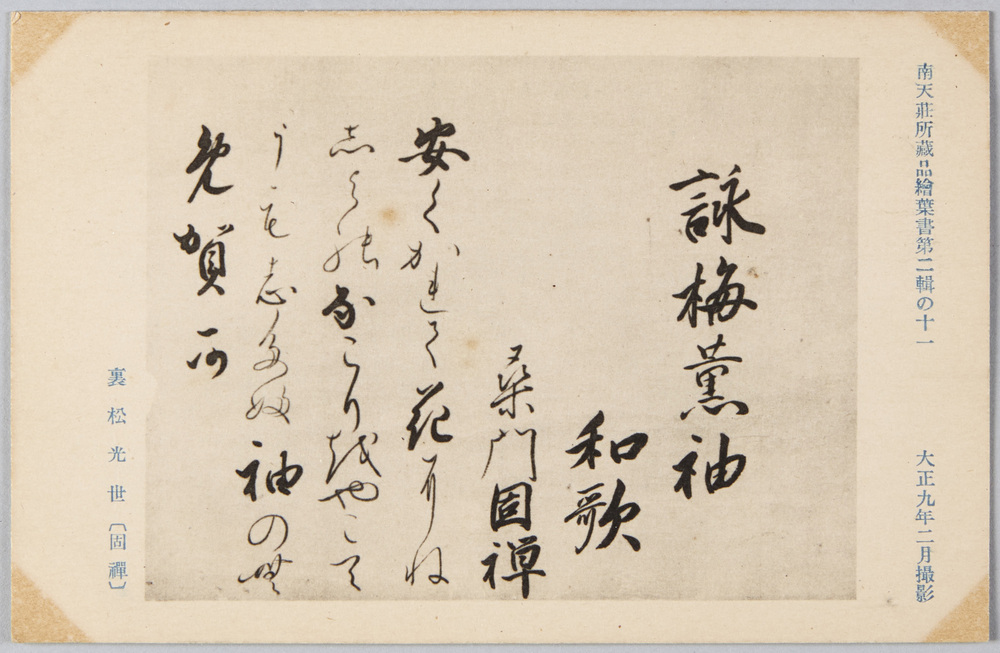 南天莊所藏品繪葉書第二輯の十一
大正九年二月撮影
詠梅薫袖
和歌
桑門固禅
安くかれて花耳ね
志よ能なこり越やこて
うも志多婦袖の無
免賀可
裏松光世〔固禪〕